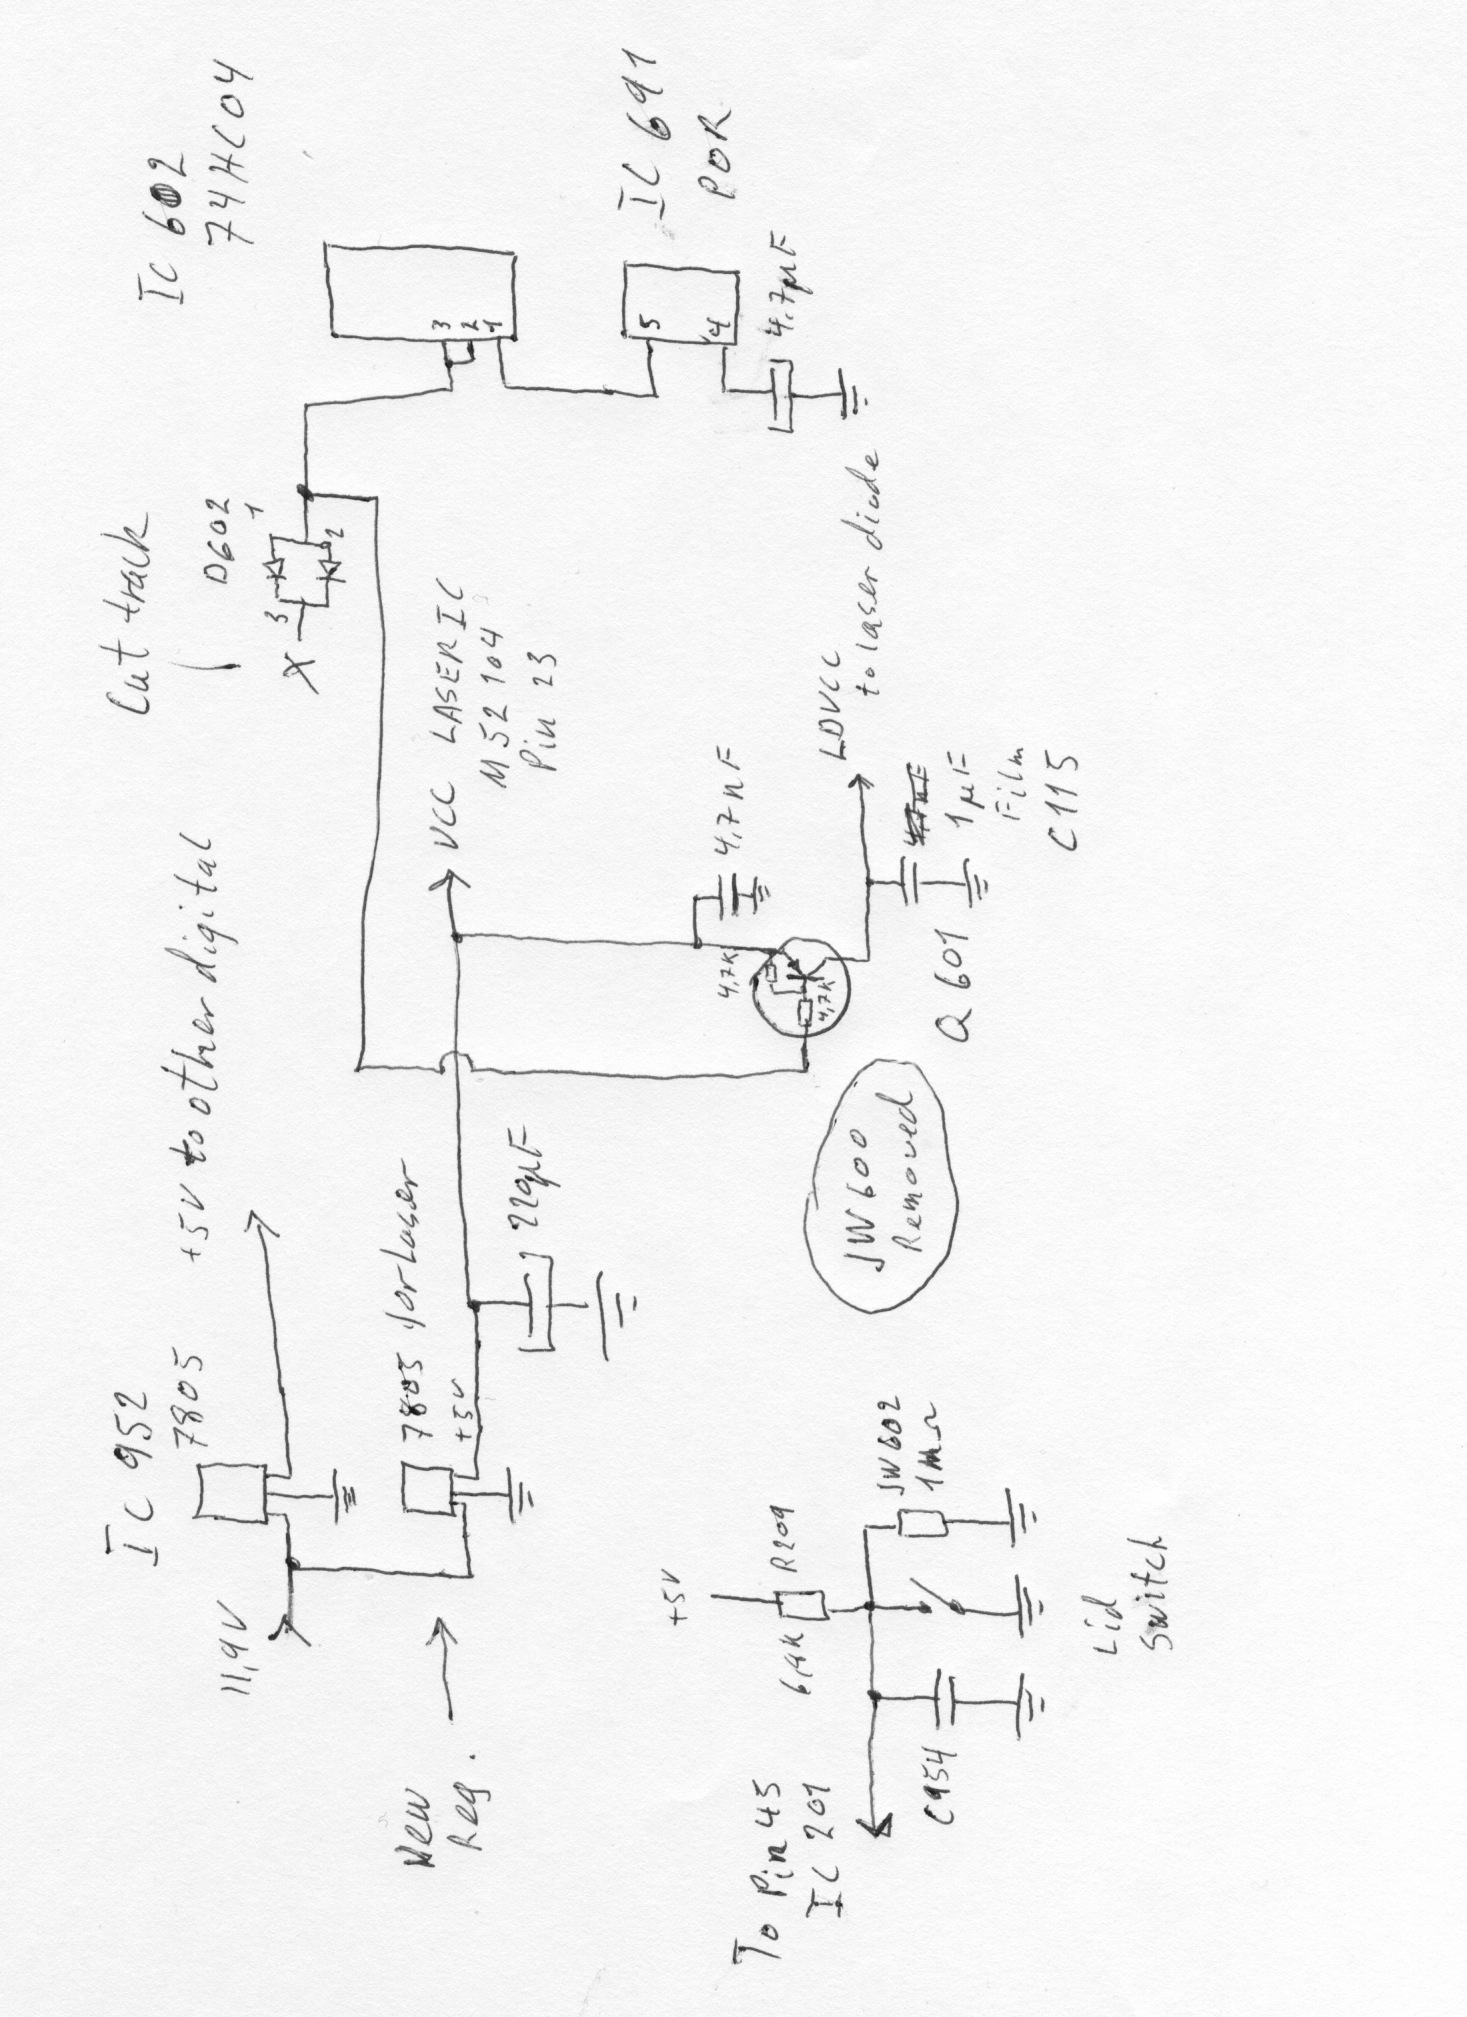 IC 952
7805
+5V to other digital
11,9V
7805 for Laser
+5V
220µF
New
Reg.
Cut track
D602
1
3
2
X
IC 602
74HC04
3
2
1
IC 691
POR
5
4
4.7µF
VCC LASER IC
M52104
Pin 23
4,7nF
4,7K
4,7K
Q 601
LDVCC
to laser diode
1µF
Film
C115
JW600
Removed
To Pin 45
IC 201
+5V
R209
JW602
C954
Lid
Switch